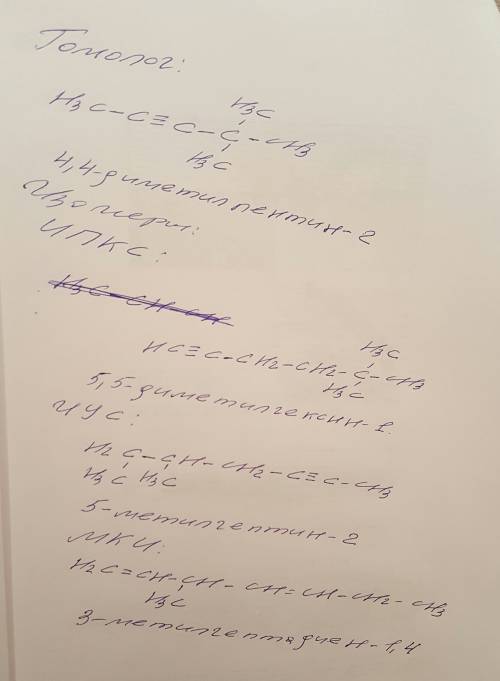 Гомолог:
H3C
H3C-C≡C-C-CH3
H3C
4,4-диметилпентин-2
Изомеры:
ИПКС:
H3C
HC≡C-CH2-CH2-C-CH3
H3C
5,5-диметилгексин-1
ИУС:
H2C-CH-CH2-C≡C-CH3
H3C H3C
5-метилгептин-2
МКИ:
H2C=CH-CH-CH=CH-CH2-CH3
H3C
3-метилгептадиен-1,4